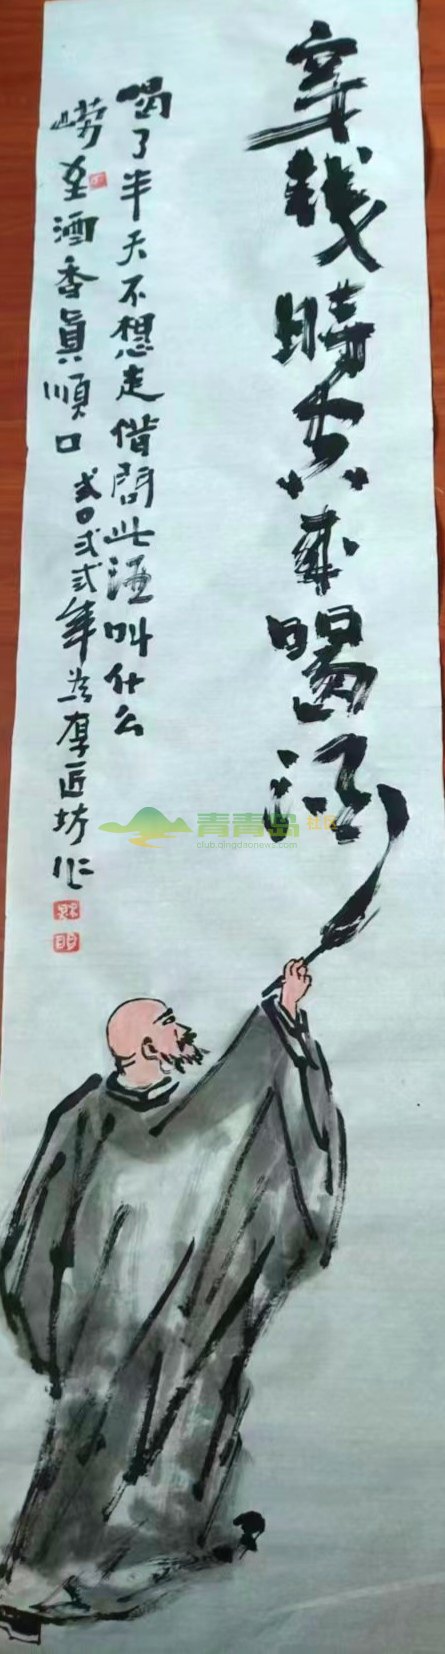 穿越時空来喝酒
喝了半天不想走借問此酒叫什么
嶗至酒香真順口
弍〇弍弍年為厚匠坊作
青青岛社区
club.qingdaonews.com